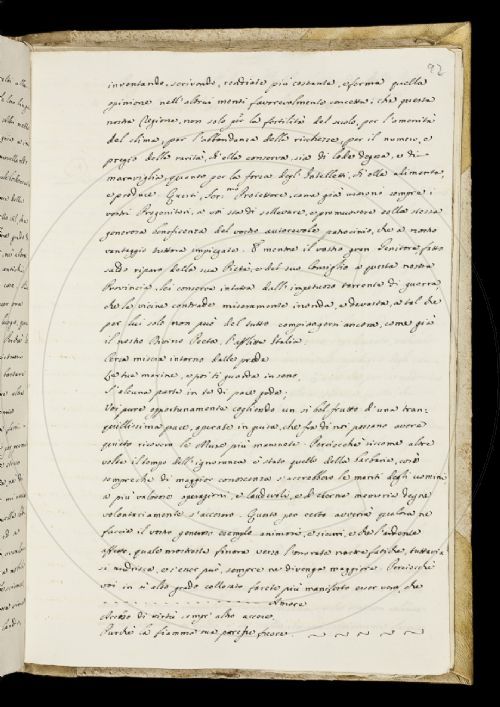 92
inventando, scrivendo, rendiate più costante, e ferma quella
opinione nell'altrui menti favorevolmente concetta; che questa
nostra Regione, non solo per la fertilità del suolo, per l'amenità
del clima, per l'abbondanza delle ricchezze, per il numero, e
pregio delle rarità, ch'ella conserva, sia di lode degna, e di
maraviglia, quanto per la forza degl'Intelletti, ch'ella alimenta,
e produce. Questi, Ser.mo Protettore, come già usarono sempre i
vostri Progenitori, a voi sta di sollevare, e promuovere colla stessa
generosa beneficenza del vostro autorevole patrocinio, che a nostro
vantaggio tuttora impiegate. E mentre il vostro gran Genitore, fatto
saldo riparo della sua Pietà, e del suo Consiglio a questa nostra
Provincia, lei conserva intatta dall'impetuoso torrente di guerra,
che le vicine contrade miseramente inonda, e devasta, a tal che
per lui solo non può del tutto compiangersi ancora, come già
il nostro Divino Poeta, l'afflitta Italia:
Cerca misera intorno dalle prode
Le tue marine, e poi ti guarda in seno,
S'alcuna parte in te di pace gode;
Voi pure opportunamente cogliendo un sì bel frutto d'una tran=
quillissima pace, operate in guisa, che fra di noi possano avere
quieto ricovero le Muse più mansuete. Perciocchè siccome altre
volte il tempo dell'ignoranza è stato quello della barbarie, così
sempreché di maggior conoscenza s'accrebbero le menti degli uomini
a più valorose operazioni, e laudevoli, e d'eterna memoria degne
volontariamente s'accesero. Quanto per certo avverrà qualora ne
faccia il vostro generoso esempio animosi, e sicuri, e che l'ardente
affetto, quale mostraste finora verso l'onorate nostre fatiche, tuttavia
si nudrisca, e s'esser può, sempre ne divenga maggiore. Perciocchè
voi in sì alto grado collocato farete più manifesto esser vero, che
. . . . . . . . . . . . Amore
Acceso di virtù sempr'altro accese,
Purchè la fiamma sua paresse fuore.